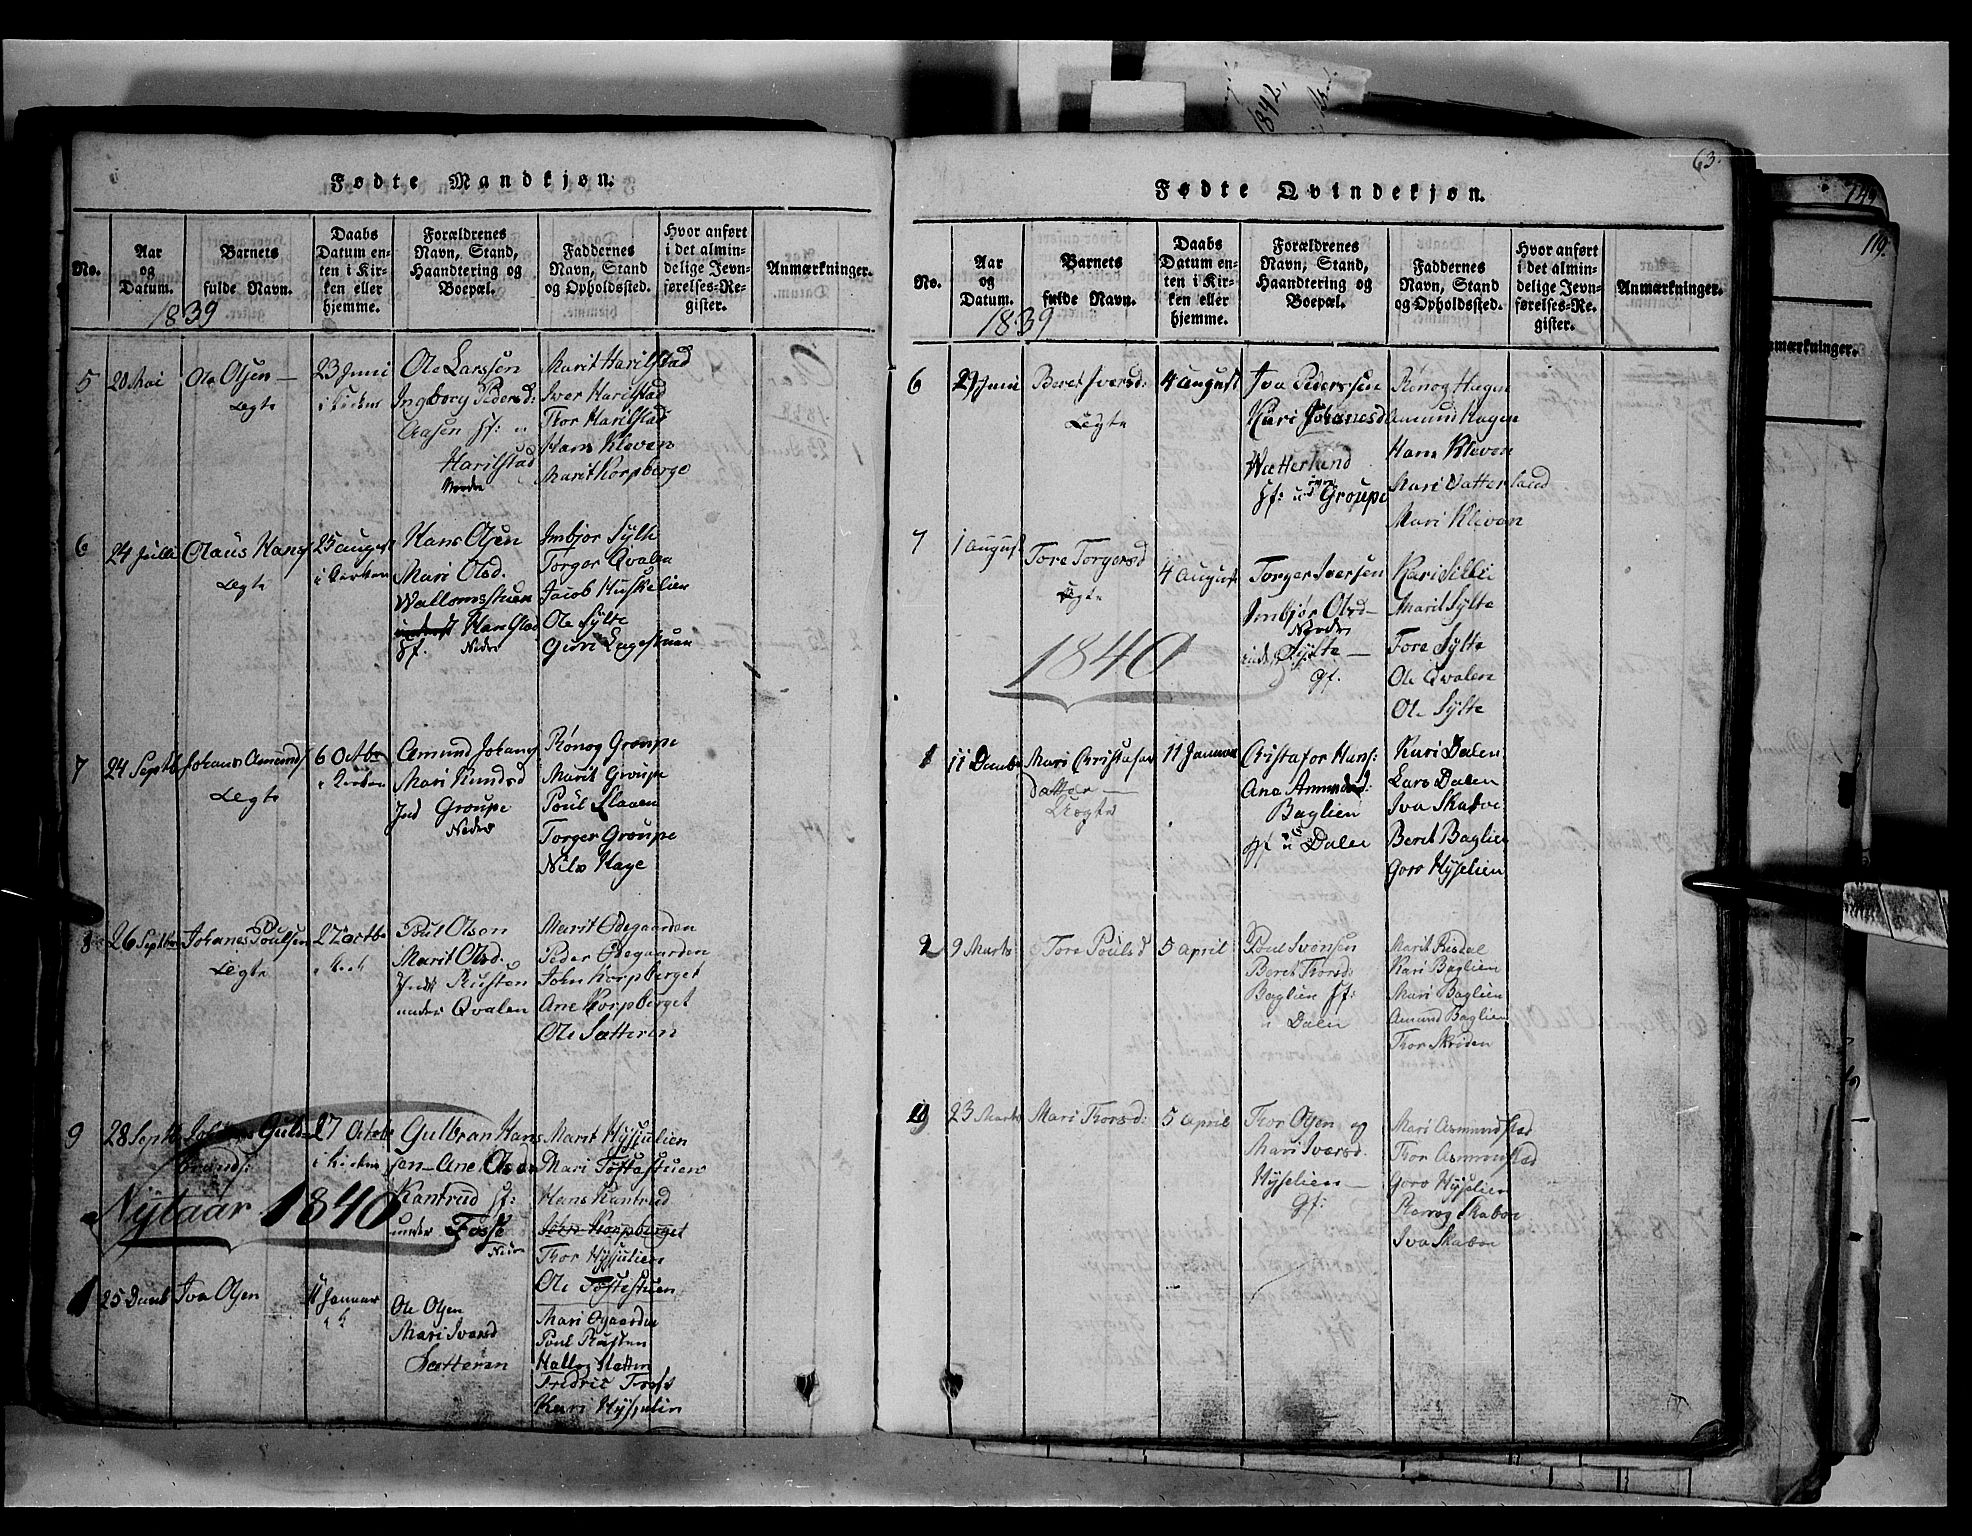 Fødte Mandkjøn.
No.
Aar
og
Datum.
1839
Barnets
fulde Navn.
Daabs
Datum en-
ten i Kir-
ken eller
hjemme.
Forældrenes
Navn, Stand,
Haandtering og
Boepæl.
Faddernes
Navn, Stand
og Opholdssted.
Hvor anført
i det almin-
delige Jevn-
førelses-Re-
gister.
Anmærkninger.
5
20 Mai
Ole Olsen
Legte
23 Juni
i kirken
Ole Larssen
Ingborg Pedersd:
Aasen Hf: u
Harilstad
Nordre
Marit Harilstad
Iver Harilstad
Tor Harilstad
Hans Kleven
Marit Korpberge
6
24 Julli
Olaus Hans
Legte
25 august
i kirken
Hans Olsen
Mari Olsd.
Wallomsstuen
Hf. Harilstad
Nedre
Imbjør Sylte
Torger Qvalen
Jacob Huskelien
Ole Sylte
7
24 Septb
Johans Amunds
Legte
6 Octbr
i kirken
Amund Johans
Mari Knudsd
Ind Groupe
Nedre
Rønog Groupe
Marit Groupe
Poul Slaaen
Torger Groupe
Nils Hage
8
26 Septbr
Johanes Poulsen
Legte
27 octbr
i kirk
Poul Olsen
Marit Olsd.
Inds Rusten
under Qvalen
Marit Ødegaarden
Peder Ødegaarden
John Korpberget
Ane Korpberget
Ole Sætteren
9
28 Septb
Johanes Gul-
brands:
27 October
i kirken
Gulbran Hans
sen - Ane Olsd
Kantrud Hf:
under Fosse
Nedre
Marit Hysjulien
Mari Toftestuen
Hans Kantrud
John Korpberget
Tor Hysjulien
Ole Toftestuen
Nytaar 1840
1
25 Decmb
Iva Olsen
11 Januar
i k
Ole Olsen
Mari Iversd
Sætteren
Mari Øgaarden
Poul Rusten
Fredric Trosf
Kari Hysjulin
63.
Fødte Qvindekjøn.
No.
Aar
og
Datum.
1839
Barnets
fulde Navn.
Daabs
Datum en-
ten i Kir-
ken eller
hjemme.
Forældrenes
Navn, Stand,
Haandtering og
Boepæl.
Faddernes
Navn, Stand
og Opholdssted.
Hvor anført
i det almin-
delige Jevn-
førelses-Re-
gister.
Anmærkninger.
6
29 Juni
Beret Iversd:
Legte
4 august
Iva Pederssen
Kari Johanesd
Watterlund
Hf: und Groupe
Rønog Hagen
Amund Hagen
Hans Kleven
Mari Vatterlund
Mari Kleven
7
1 august
Tore Torgersd
Legte
4 August
Torger Iversen
Imbjør Olsd
Nedre
Sylte
Gf.
Kari Sille
Marit Sylte
Tore Sylte
Ole Qvalen
Ole Sylte
1840
1
11 Decmbr
Mari Christafer
Datter
Ægte
11 Januar
Cristafor Hans:
Ane Amunds:
Baglien
Hf u Dalen
Kari Dalen
Lars Dalen
Iva Skabve
Beret Baglien
Goro Hyselien
2
9 Marts
Tore Poulsd
5 April
Poul Svensen
Beret Torsd:
Baglien Hf:
u Dalen
Marit Risdal
Kari Baglien
Mari Baglien
Amund Baglien
Tor Skriden
23 Marts
Mari Torsd:
5 April
Tor Olsen og
Mari Iversd.
Hyselien
Gf:
Mari Asmundstad
Tor Asmundstad
Goro Hyselien
Rønnog Skaboe
Iva Skaboe
1842,
144
119.
nmærkninger.